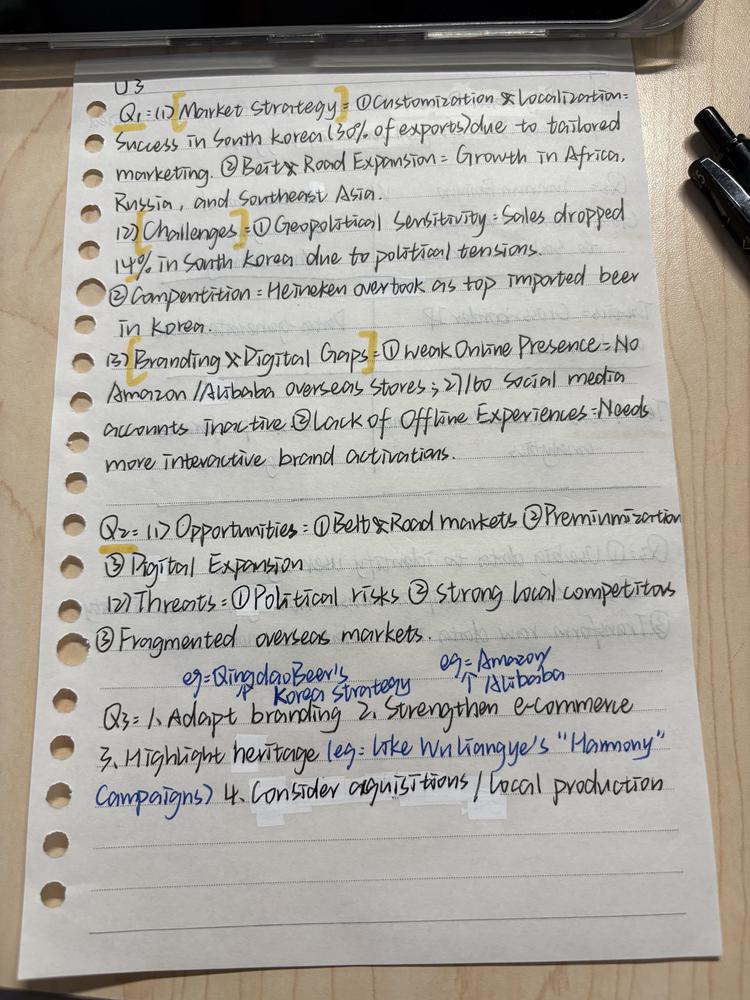 U3
Q1=(1)[Market strategy]=①Customization & Localization=
Success in South Korea (30% of exports) due to tailored
marketing. ②Belt & Road Expansion = Growth in Africa,
Russia, and Southeast Asia.
(2)[Challenges]=①Geopolitical Sensitivity=Sales dropped
14% in South Korea due to political tensions.
②Compentition=Heineken overtook as top imported beer
in Korea.
(3)[Branding & Digital Gaps]=①Weak Online Presence=No
Amazon/Alibaba overseas stores; 27/60 social media
accounts inactive ②Lack of Offline Experiences=Needs
more interactive brand activations.
Q2=(1)Opportunities=①Belt & Road markets ②Premiunization
③Digital Expansion
(2)Threats=①Political risks ② Strong local competitors
③Fragmented overseas markets.
eg=QingdaoBeer's eg=Amazon
↑ Korea strategy ↑ Alibaba
Q3=1. Adapt branding 2. Strengthen e-commerce
3. Highlight heritage (eg= like Wuliangye's "Harmony"
Campaigns) 4. Consider aquisitions / local production